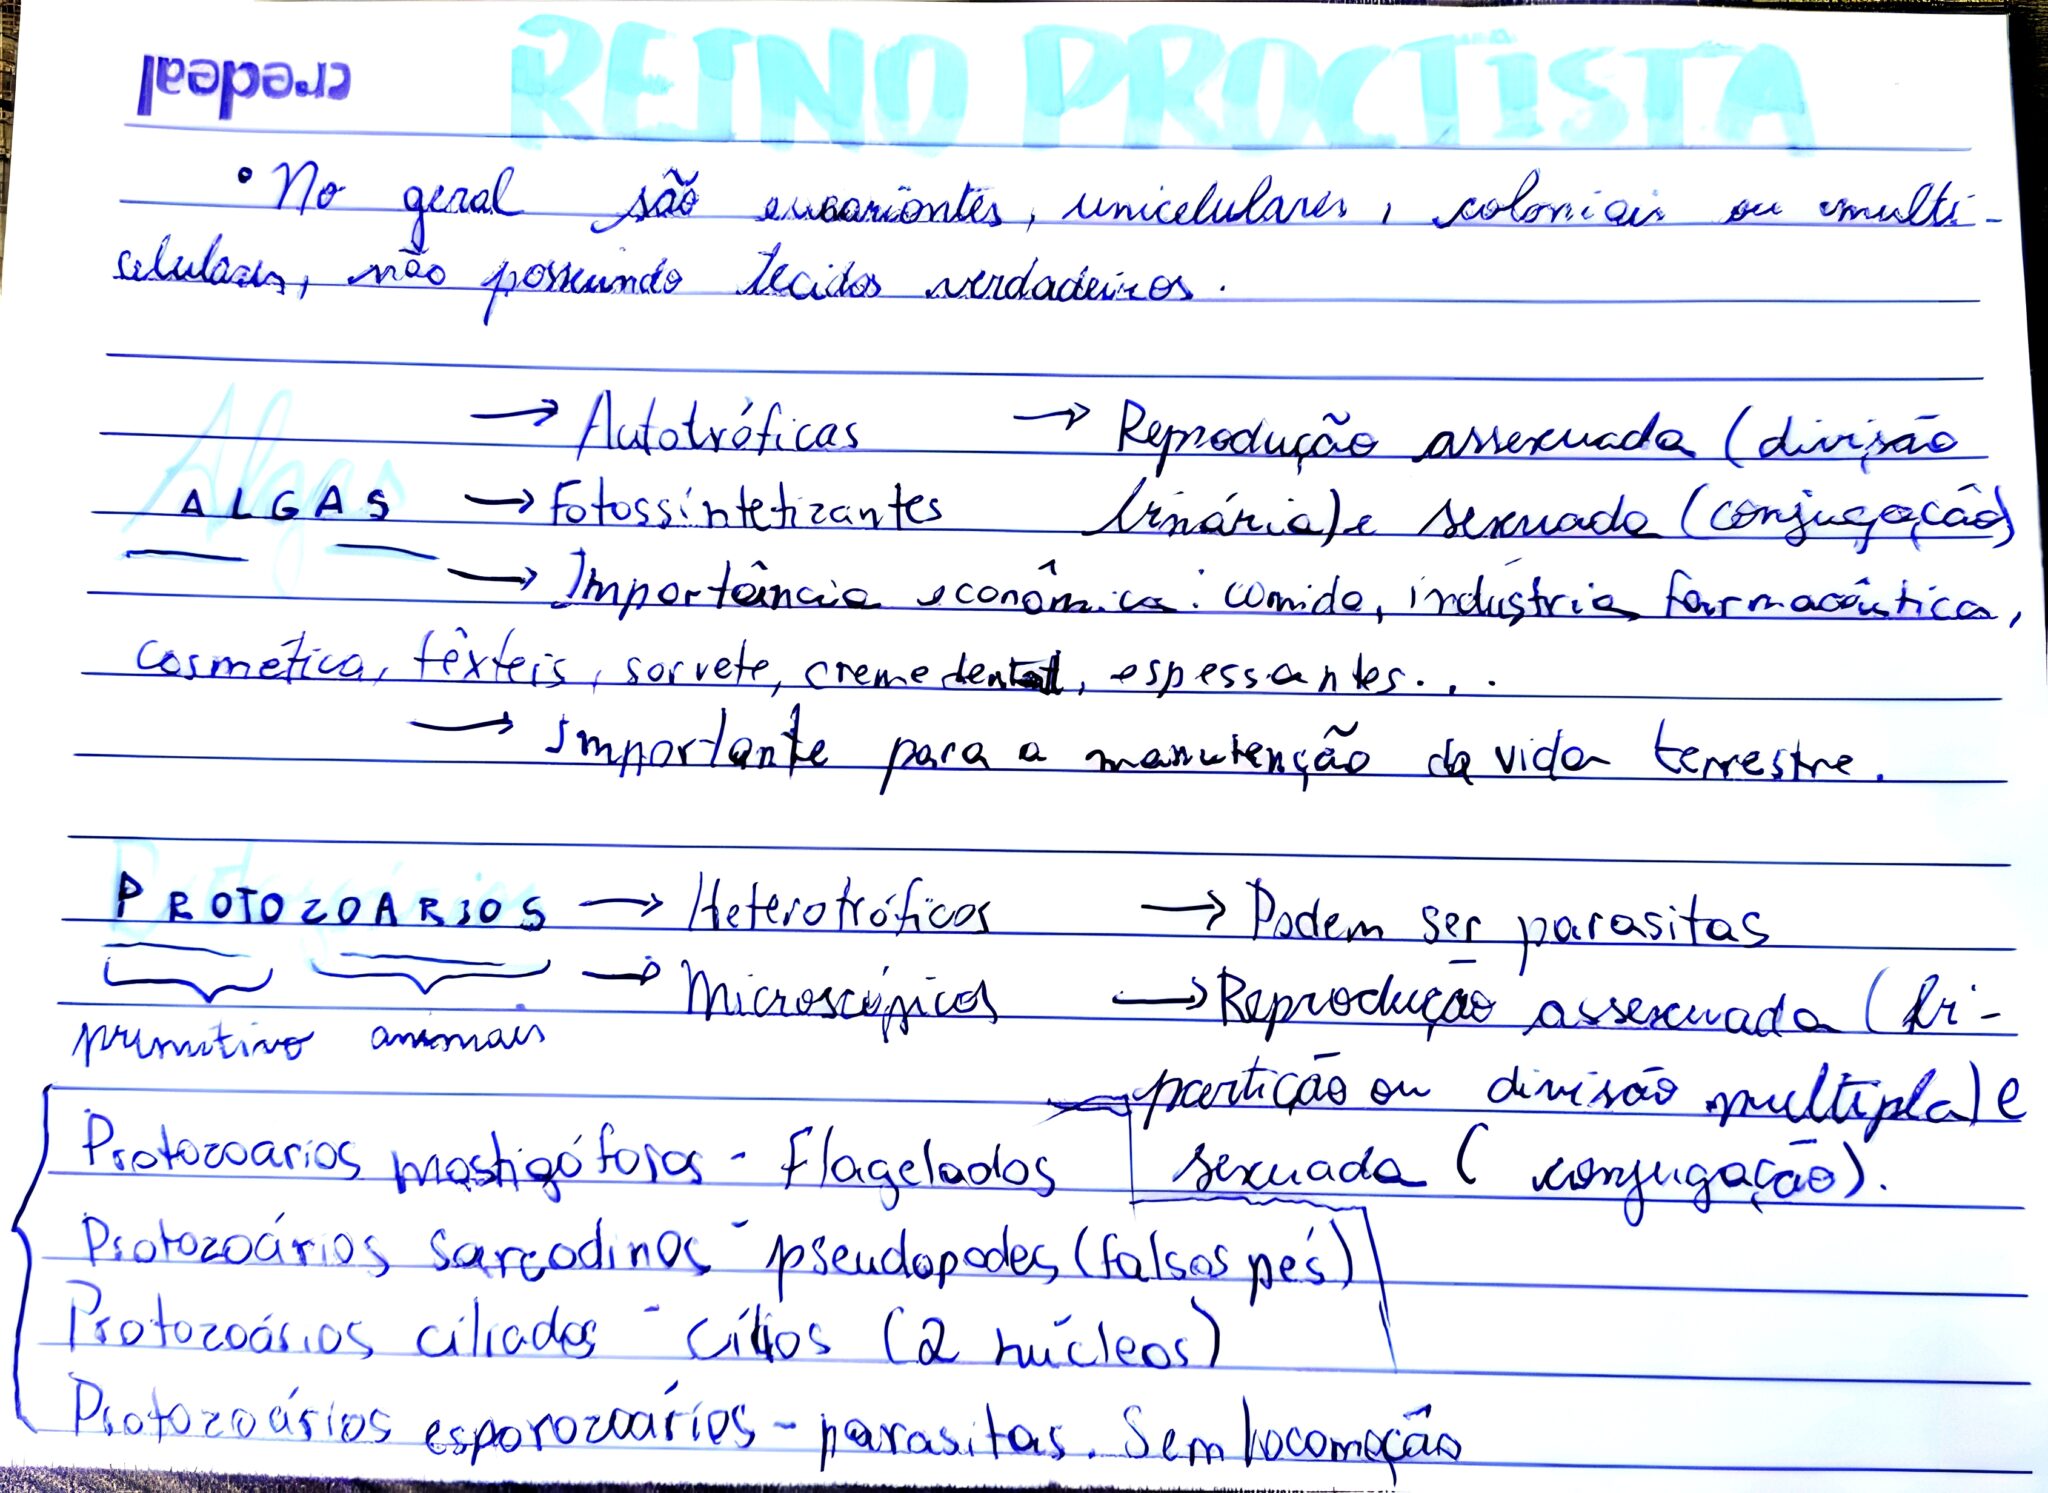 credeal
REINO PROCTISTA
• No geral são eucariontes, unicelulares, coloniais ou multi-
celulares, não possuindo tecidos verdadeiros.
Algas
→ Autotróficas → Reprodução assexuada (divisão
ALGAS → Fotossíntetizantes binária) e sexuada (conjugação)
→ Importância econômica: comida, indústria farmacêutica,
cosmética, têxteis, sorvete, creme dental, espessantes...
→ Importante para a manutenção da vida terrestre.
PROTOZOÁRIOS → Heterotróficos → Podem ser parasitas
→ Microscópicos → Reprodução assexuada (bi-
primitivo animais
partição ou divisão multipla) e
Protozoarios mastigóforos - Flagelados sexuada (conjugação).
Protozoários sarcodinos - pseudopodes (falsos pés)
Protozoários ciliados - cílios (2 núcleos)
Protozoários esporozoários - parasitas. Sem locomoção